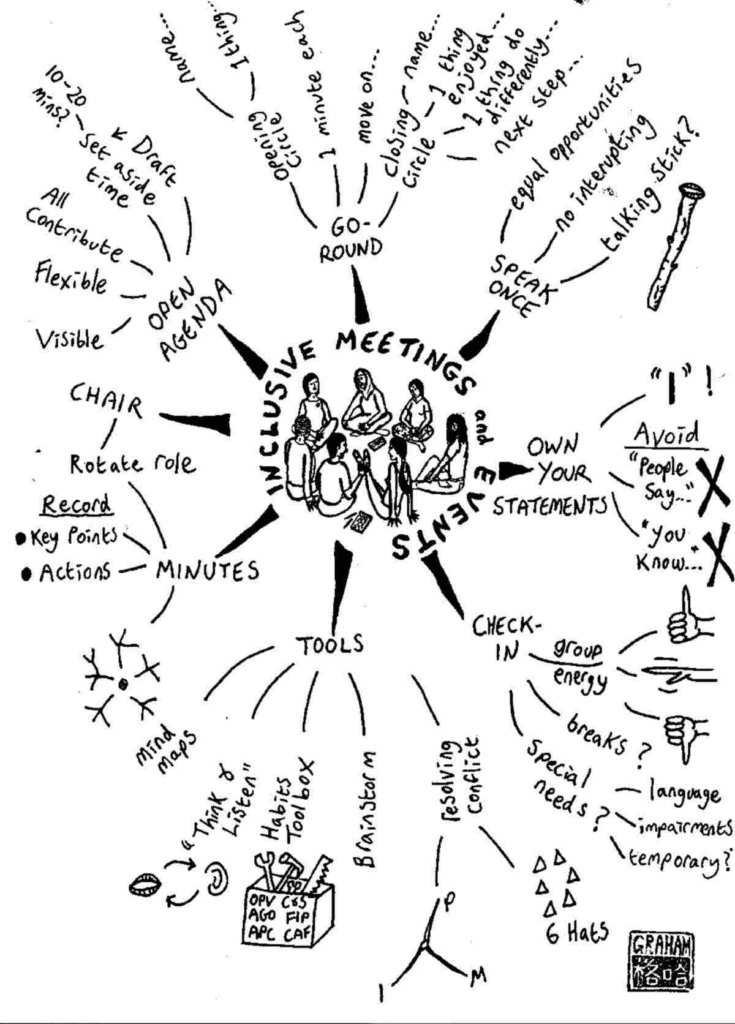 INCLUSIVE MEETINGS and EVENTS
GO-
ROUND
Opening
Circle
name...
1 thing...
1 minute each
move on...
closing
Circle
name...
1 thing
enjoyed...
1 thing do
differently...
next step...
SPEAK
ONCE
equal opportunities
no interupting
talking stick?
OWN
YOUR
STATEMENTS
"I"!
Avoid
"People
Say..."
"You
Know..."
CHECK-
IN
group
energy
breaks?
Special
needs?
language
impairments
temporary?
TOOLS
resolving
conflict
6 Hats
P
M
I
Brainstorm
Habits
Toolbox
OPV C&S
AGO FIP
APC CAF
"Think &
Listen"
mind
maps
MINUTES
Record
• Key Points
• Actions
CHAIR
Rotate role
OPEN
AGENDA
Draft
Set aside
time
10-20
mins?
All
Contribute
Flexible
Visible
GRAHAM
格哈